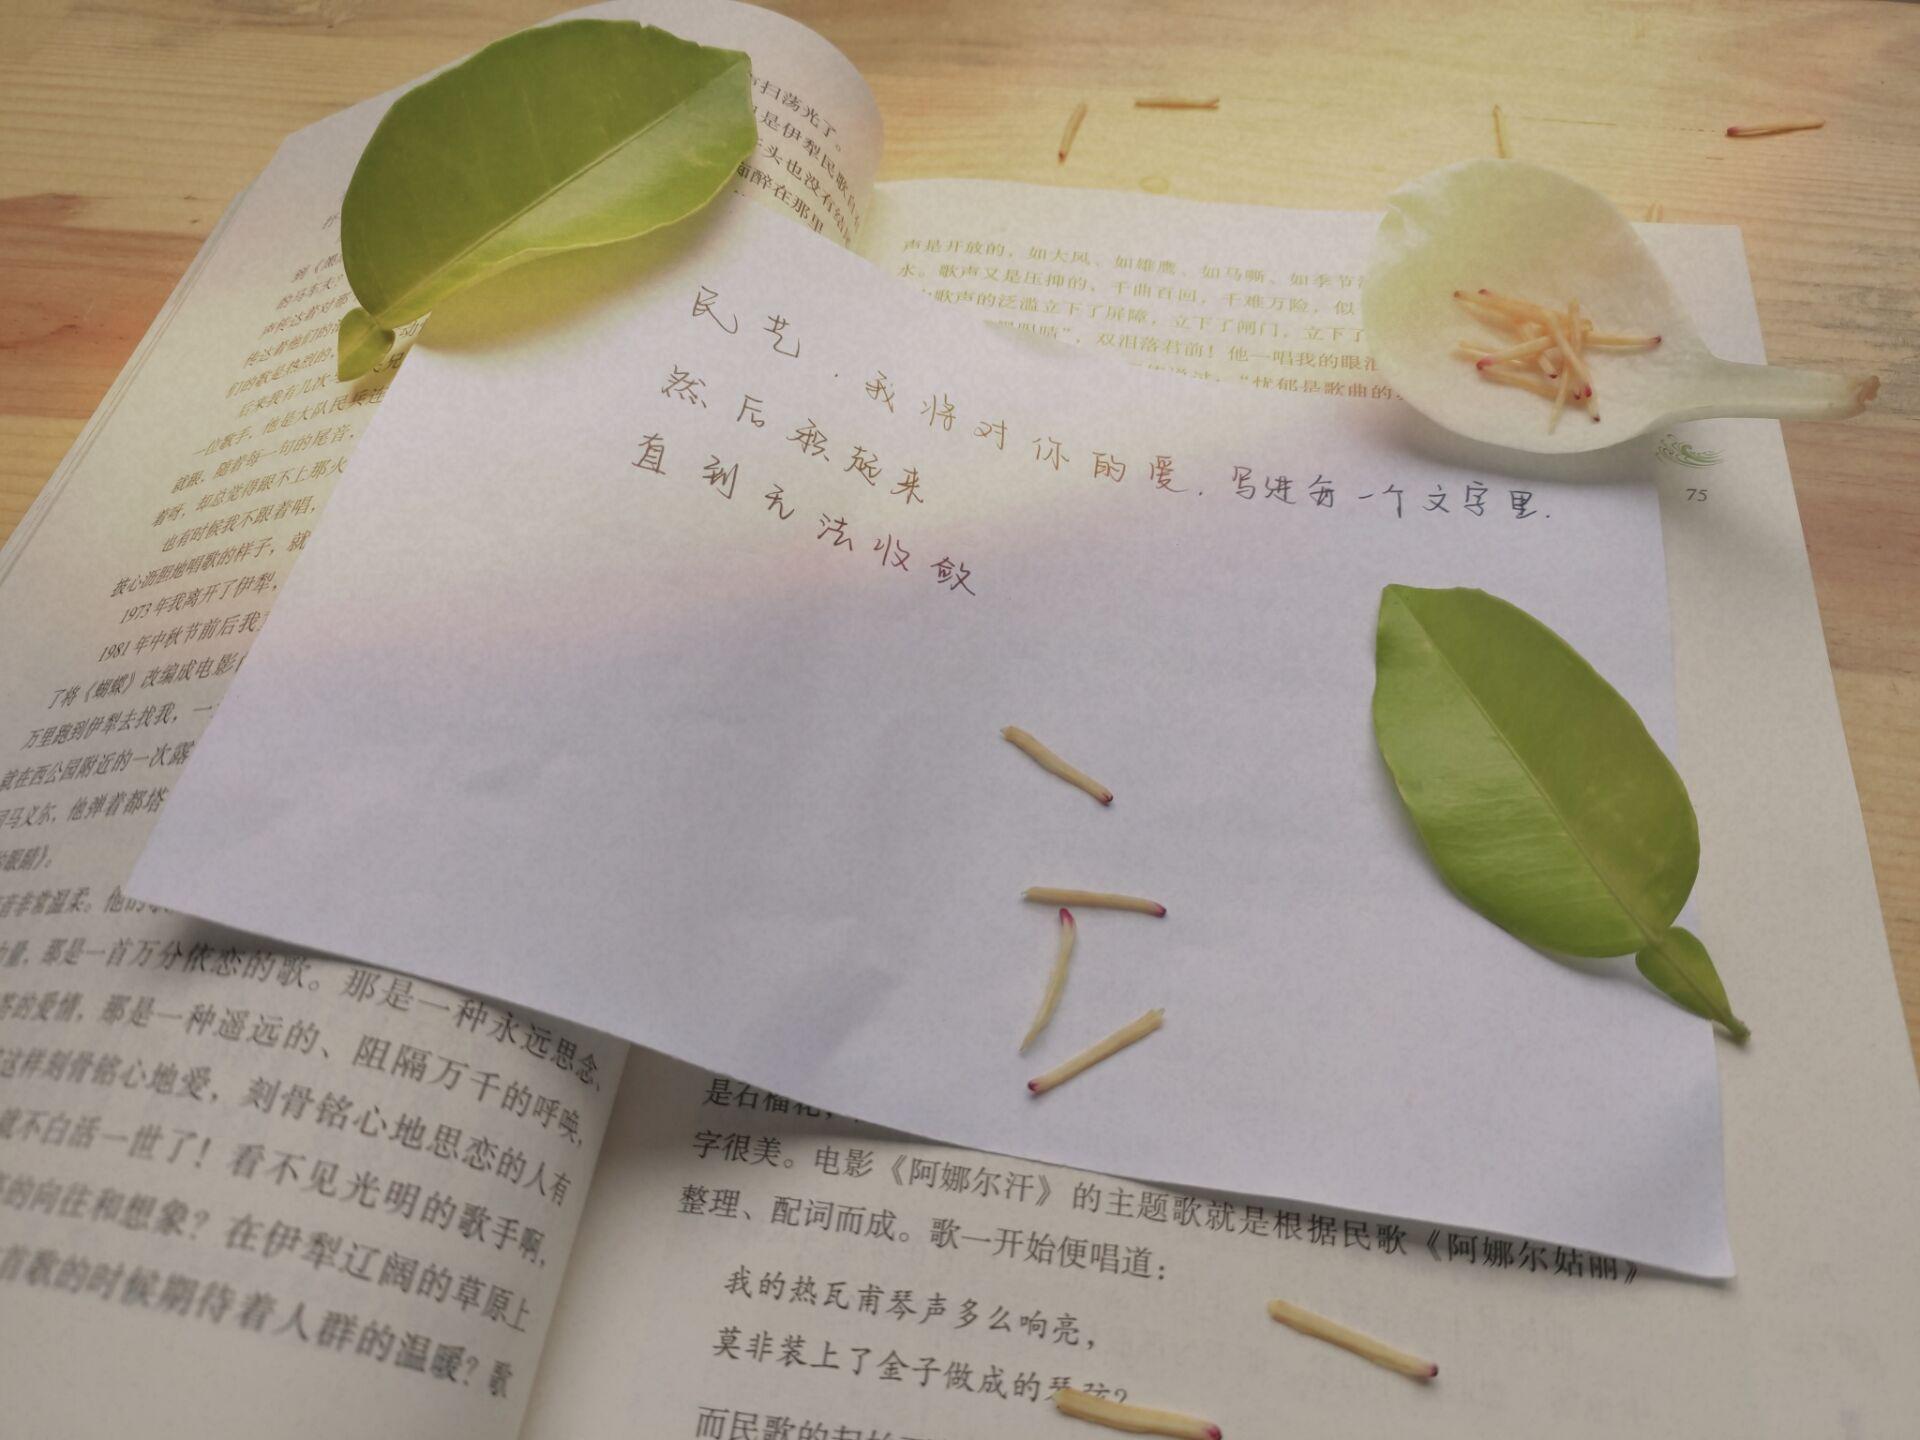 民艺，我将对你的爱，写进每一个文字里．
然后积延来
直到无法收敛
有扫荡光了
是伊犁民歌
头也没有结
面醉在那里
的马车夫？
声传达着对那
传达着他们的
们的歌是热烈的，
后来我有几次
一位歌手，他是大队民兵连
就跟，随着每一句的尾音，
着呀，却总觉得跟不上那火
也有时候我不跟着唱，
披心沥胆地唱歌的样子，就
1973年我离开了伊犁，
1981年中秋节前后我
了将《蝴蝶》改编成电影
万里跑到伊犁去找我，一
就在西公园附近的一次露
司马义尔，他弹着都塔
眼睛》。
音非常温柔。他的
力量，那是一首万分依恋的歌。那是一种永远思念、
答的爱情，那是一种遥远的、阻隔万千的呼唤，
这样刻骨铭心地爱，刻骨铭心地思恋的人有
就不白活一世了！看不见光明的歌手啊，
的向往和想象？在伊犁辽阔的草原上
首歌的时候期待着人群的温暖？歌
声是开放的，如大风、如雄鹰、如马嘶、如季节
水。歌声又是压抑的，千曲百回，千难万险，似
歌声的泛滥立下了屏障，立下了闸门，立下了
眼睛”，双泪落君前！他一唱我的眼泪
说过：“忧郁是歌曲的
75
是石榴花，
字很美。电影《阿娜尔汗》的主题歌就是根据民歌《阿娜尔姑丽》
整理、配词而成。歌一开始便唱道：
我的热瓦甫琴声多么响亮，
莫非装上了金子做成的琴弦？
而民歌的起